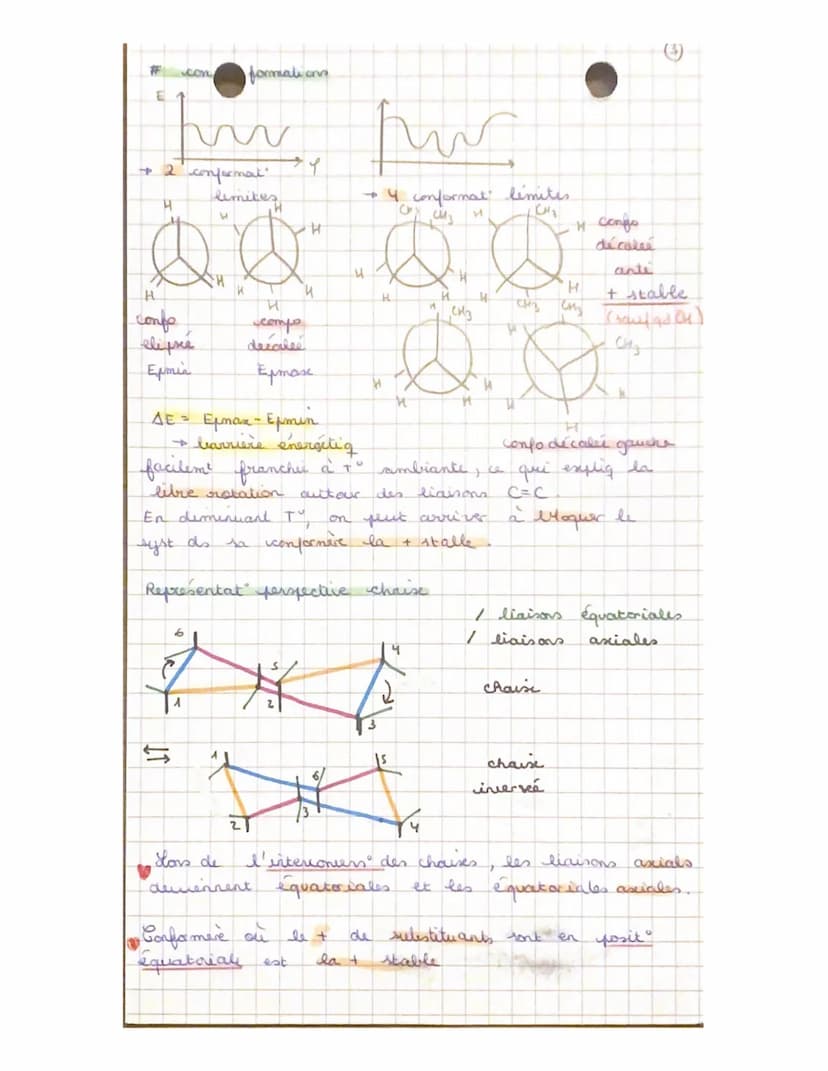 (3)
# conformations
E
φ
→ 2 conformat°
limites
→ 4 conformat° limites
H H
H H
H H H
H
H H
H
CH3 CH3
H H
H H
H CH3
H
H H
CH3
confo
décalée
anti
+ stable
(sauf qd OH)
H CH3
H H
H H
CH3
H CH3
H H
H
confo
eclipsé
Epmin
confo
décalée
Epmax
ΔE = Epmax - Epmin
→ barrière énergétiq
confo décalée gauche
facilemt franchie à T° ambiante, ce qui expliq la
libre rotation autour des liaisons C=C.
En diminuant T°, on peut arriver à bloquer le
syst ds sa conformère la + stable.
Représentat° perspective chaise
/ liaisons équatoriales
/ liaisons axiales
6 5 4
1 2 3
chaise
⇆
1 6 5
2 3 4
chaise
inversée
Lors de l'interconvers° des chaises, les liaisons axials
deviennent équatoriales et les équatoriales axiales.
Conformère où le + de substituants sont en posit°
équatoriale est la + stable